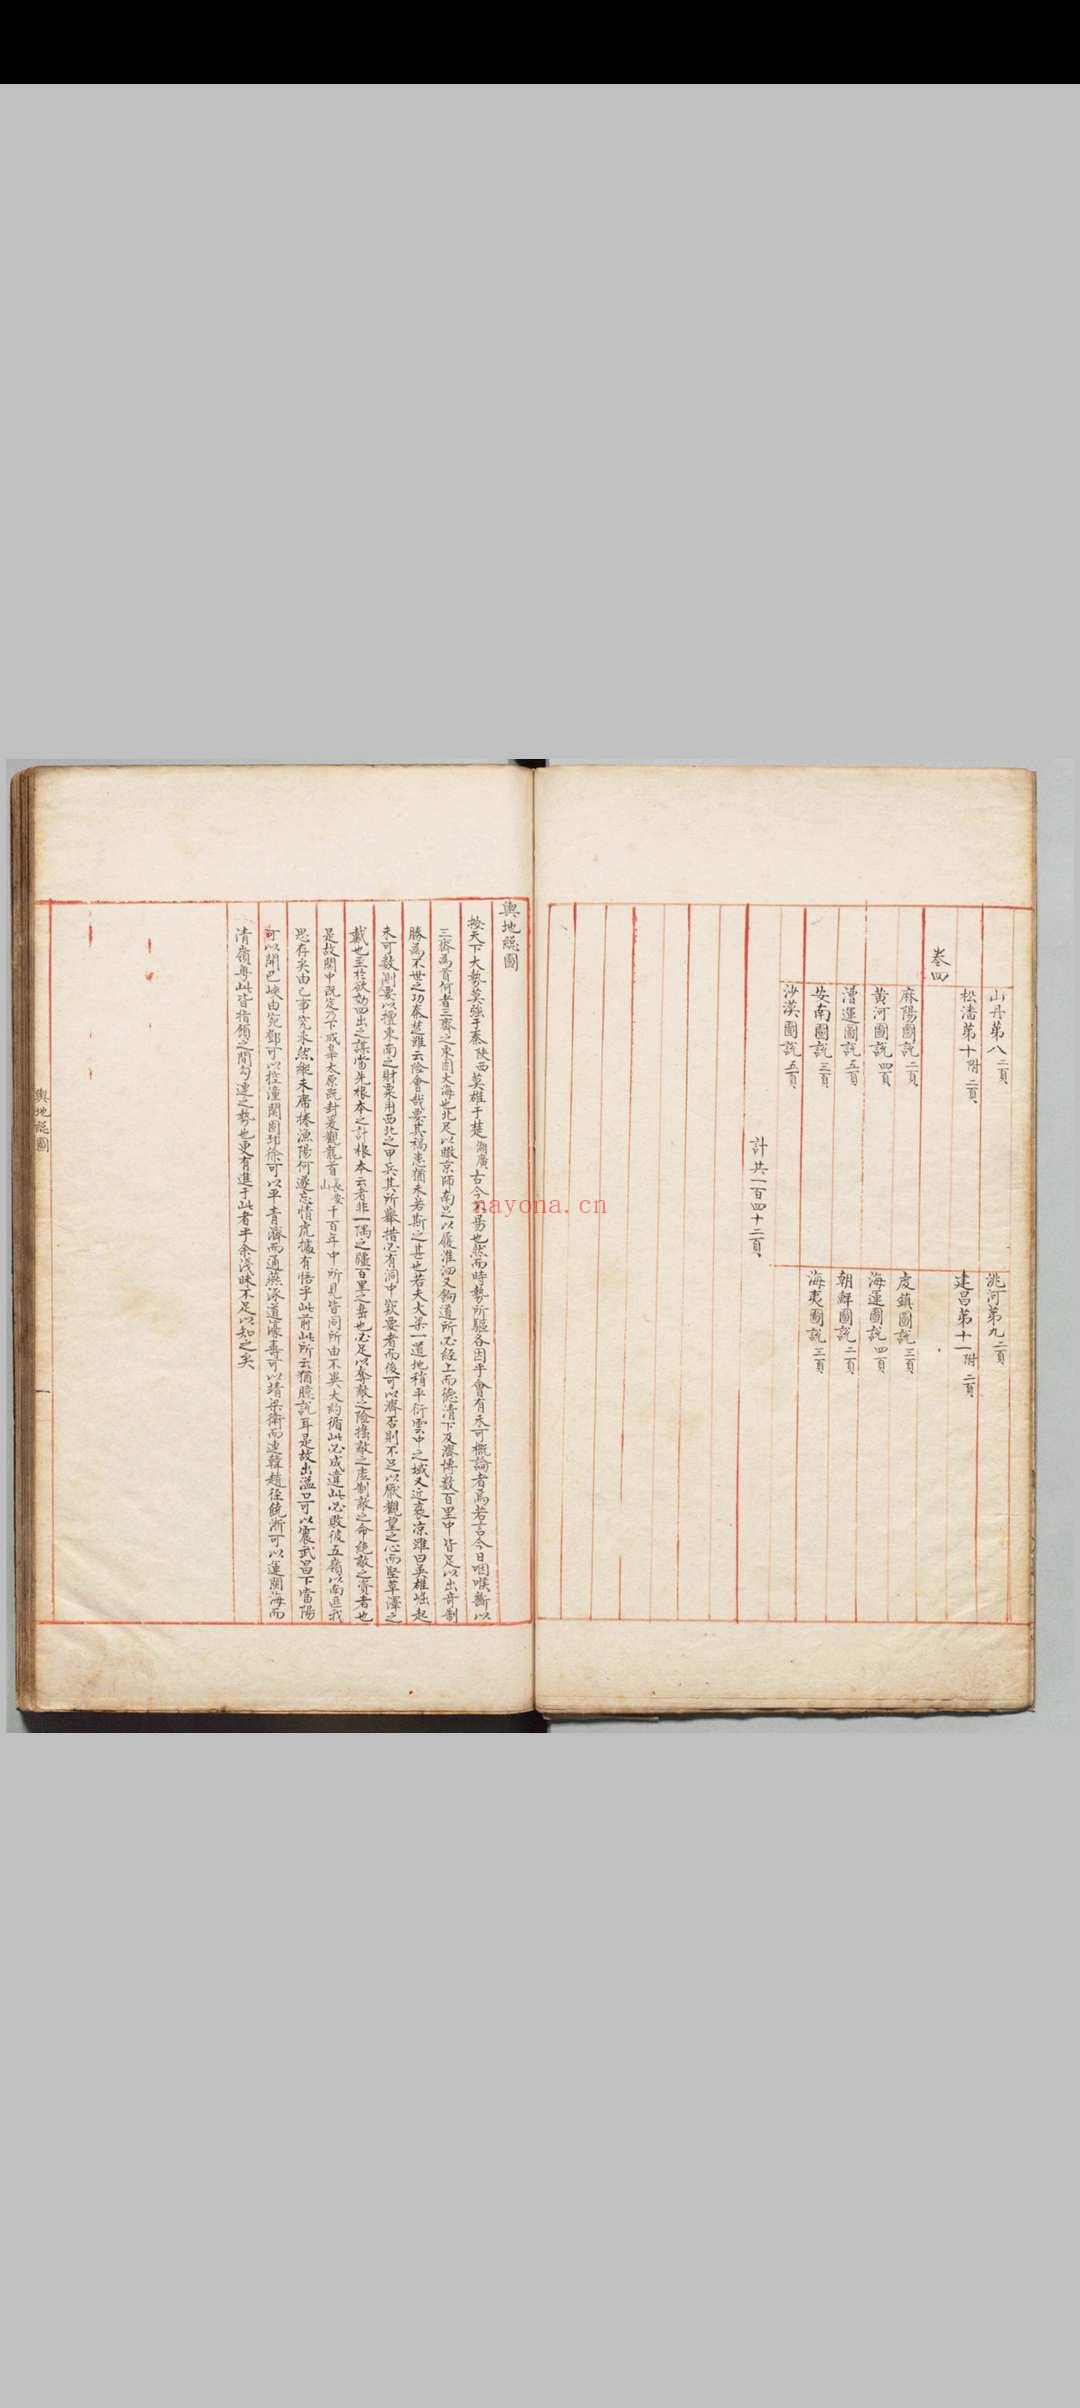 山丹第八二頁
洮河第九二頁
松潘第十附二頁
建昌第十一附二頁
卷四
麻陽圖說二頁
皮鎮圖說三頁
黃河圖說四頁
海運圖說四頁
漕運圖說五頁
朝鮮圖說二頁
安南圖說三頁
海夷圖說三頁
沙漠圖說五頁
計共一百四十二頁
輿地總圖
按天下大勢莫強于秦陜西莫雄于楚湖廣古今易也然而時勢所驅各因乎會有未可概論者焉若言今日咽喉斷以
三齊為首何者三齊之東固大海也北足以瞰京師南足以履淮泗又餉道所必經上而德清下及濟博數百里中皆足以出奇制
勝為不世之功秦楚雖云險會哉要其禍患猶未若斯之甚也若夫大梁一道地稍平衍雲中之域又近裹涼雖曰英雄崛起
未可數測要以擅東南之財粟用西北之甲兵其所舉措必有洞中窾要者而後可以濟否則不足以厭觀望之心而堅草澤之
戴也至於欲効四出之謀當先根本之計根本云者非一隅之疆百里之岳也必足以奪敵之險搗敵之虛制敵之命絕敵之資者也
是故關中既定乃下成皋太原既封爰觀龍首長安山千百年中所見皆同所由不異大約循此必成違此必敗彼五嶺以南區我
思存矣由已事究未然縱未席捲漁陽何遽忘情虎據有悟乎此前此所云猶臆說耳是故出溢口可以震武昌下當陽
可以開巴峽由宛鄧可以控潼關固邳徐可以平青濟而通燕涿道濠壽可以靖梁衛而連韓趙徑饒浙可以運閩海而
清嶺粵此皆指顧之間勾連之勢也更有進于此者乎余淺昧不足以知之矣
輿地總圖
一
nayona.cn